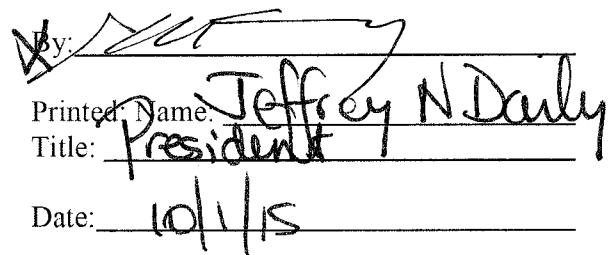 By:
Printed Name: Jeffrey N Daily
Title: President
Date: 10/1/15